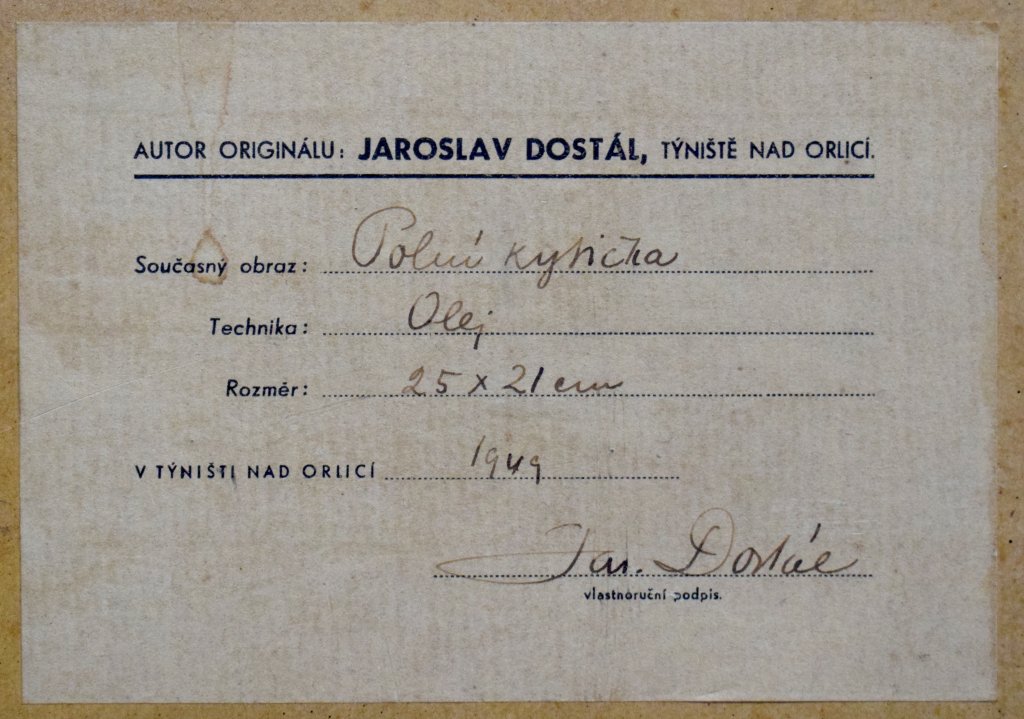 AUTOR ORIGINÁLU: JAROSLAV DOSTÁL, TÝNIŠTĚ NAD ORLICÍ.
Současný obraz: Polní kytička
Technika: Olej
Rozměr: 25 x 21 cm
V TÝNIŠTI NAD ORLICÍ 1949
Jar. Dostál
vlastnoruční podpis.